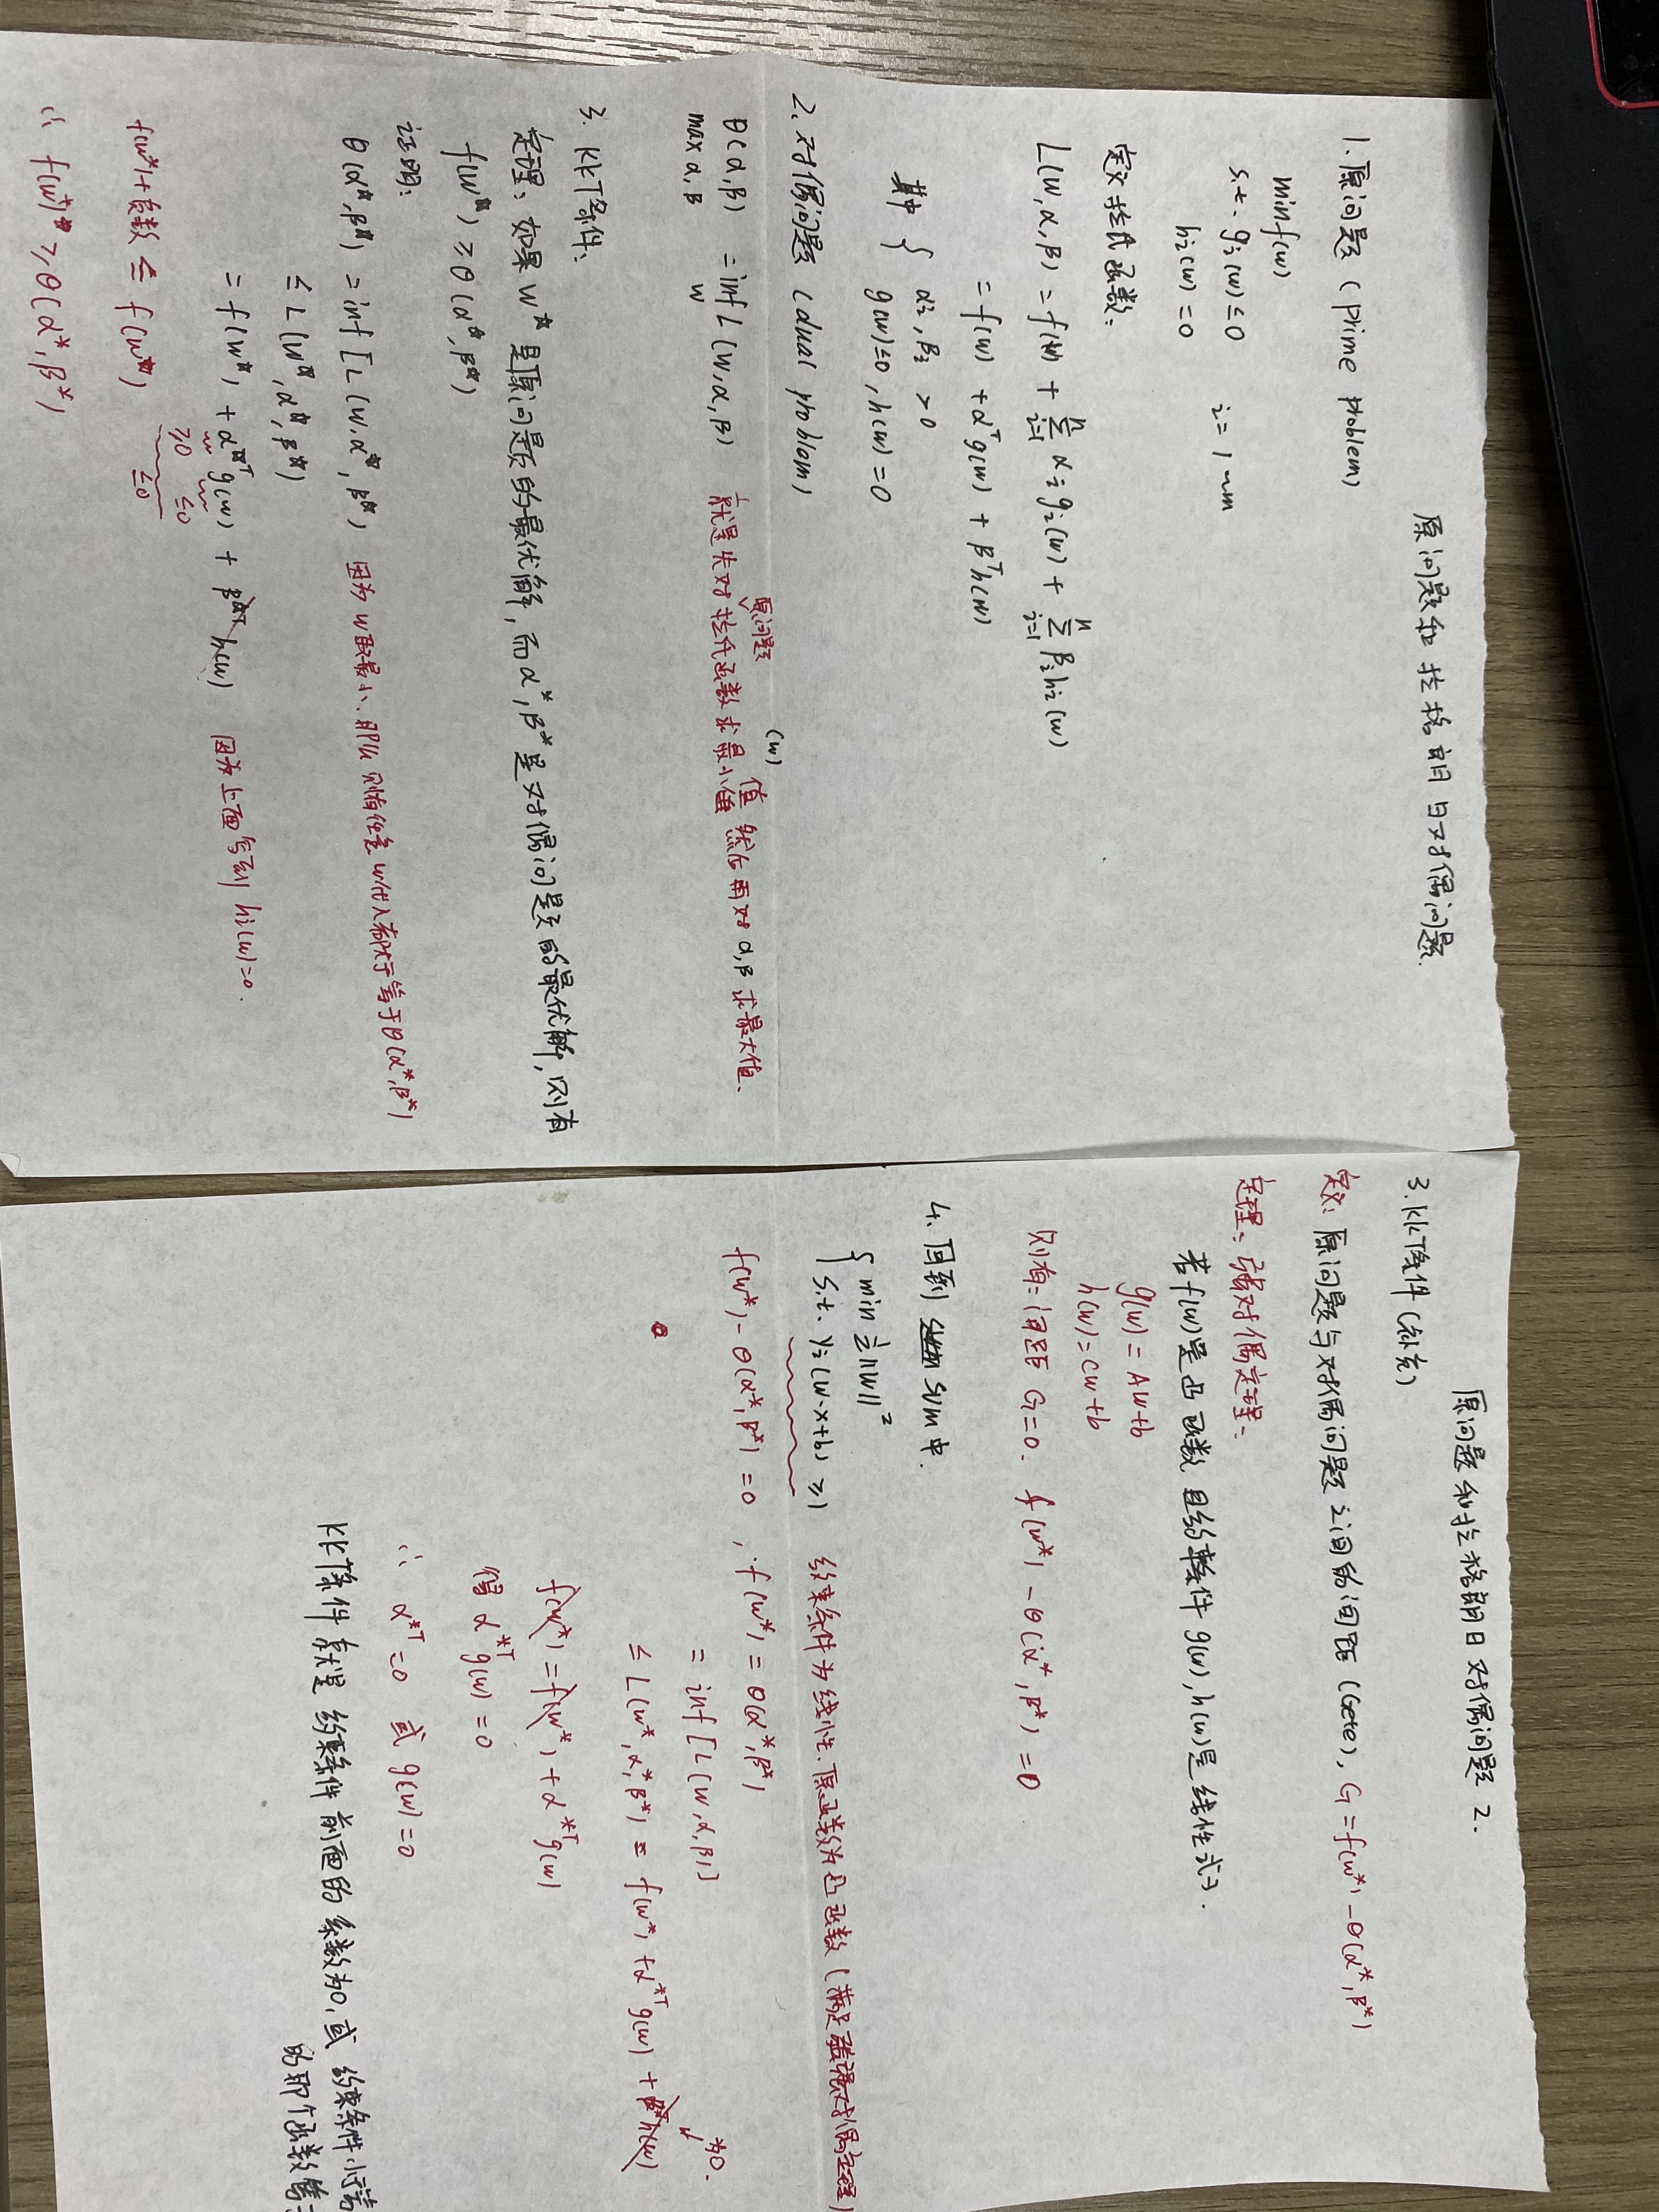 原问题和拉格朗日对偶问题.
1.原问题 (prime problem)
minf(w)
s.t. gi(w)≤0
i=1~m
hi(w)=0
定义拉氏函数:
L(W,α,β) = f(w) + Σⁿᵢ₌₁ αi gi(w) + Σⁿᵢ₌₁ βi hi(w)
= f(w) + αᵀg(w) + βᵀh(w)
其中 { αi, βi >0
g(w)≤0, h(w)=0
2.对偶问题 (dual problem)
原问题 (w) 值
θ(α,β) = inf L(W,α,β) 就是先对拉氏函数求最小值 然后再对 α,β 求最大值.
max α,β w
3. KKT条件:
定理: 如果 W* 是原问题的最优解, 而 α*,β* 是对偶问题的最优解, 则有
f(W*) ≥ θ(α*,β*)
证明:
θ(α*,β*) = inf [L(W,α*,β*) 因为 w取最小. 那么 则有任意 w代入都大于等于 θ(α*,β*)
≤ L(W*,α*,β*)
= f(W*) + α*ᵀ g(w) + β*ᵀ h(w) 因为上面写到 hi(w)=0.
≥0 ≤0
≤0
f(w*)+负数 ≤ f(w*)
∴ f(w*)* ≥ θ(α*,β*)
原问题和拉格朗日对偶问题 2.
3.KKT条件(补充)
定义: 原问题与对偶问题之间的间距 (Gete), G=f(w*)-θ(α*,β*)
定理: 强对偶定理:
若f(w)是凸函数 且约束条件 g(w), h(w)是线性式子.
g(w) = Aw+b
h(w)=cw+b
则有: 间距 G=0. f(w*) -θ(α*,β*) =0
4. 回到 SVM中.
{ min ½||W||²
s.t. yi(w·x+b) ≥1 约束条件为线性. 原函数为凸函数 (满足强对偶定理)
f(w*)-θ(α*,β*) =0, f(w*) = θ(α*,β*)
= inf [L(W,α,β)]
为0.
≤ L(w*,α*,β*) = f(w*) +α*ᵀg(w) + β*h(w)
f(w*) =f(w*) +α*ᵀg(w)
得 α*ᵀg(w) =0
∴ α*ᵀ=0 或 g(w)=0
KKT条件 就是 约束条件 前面的 系数为0, 或 约束条件小于等
的那个函数等